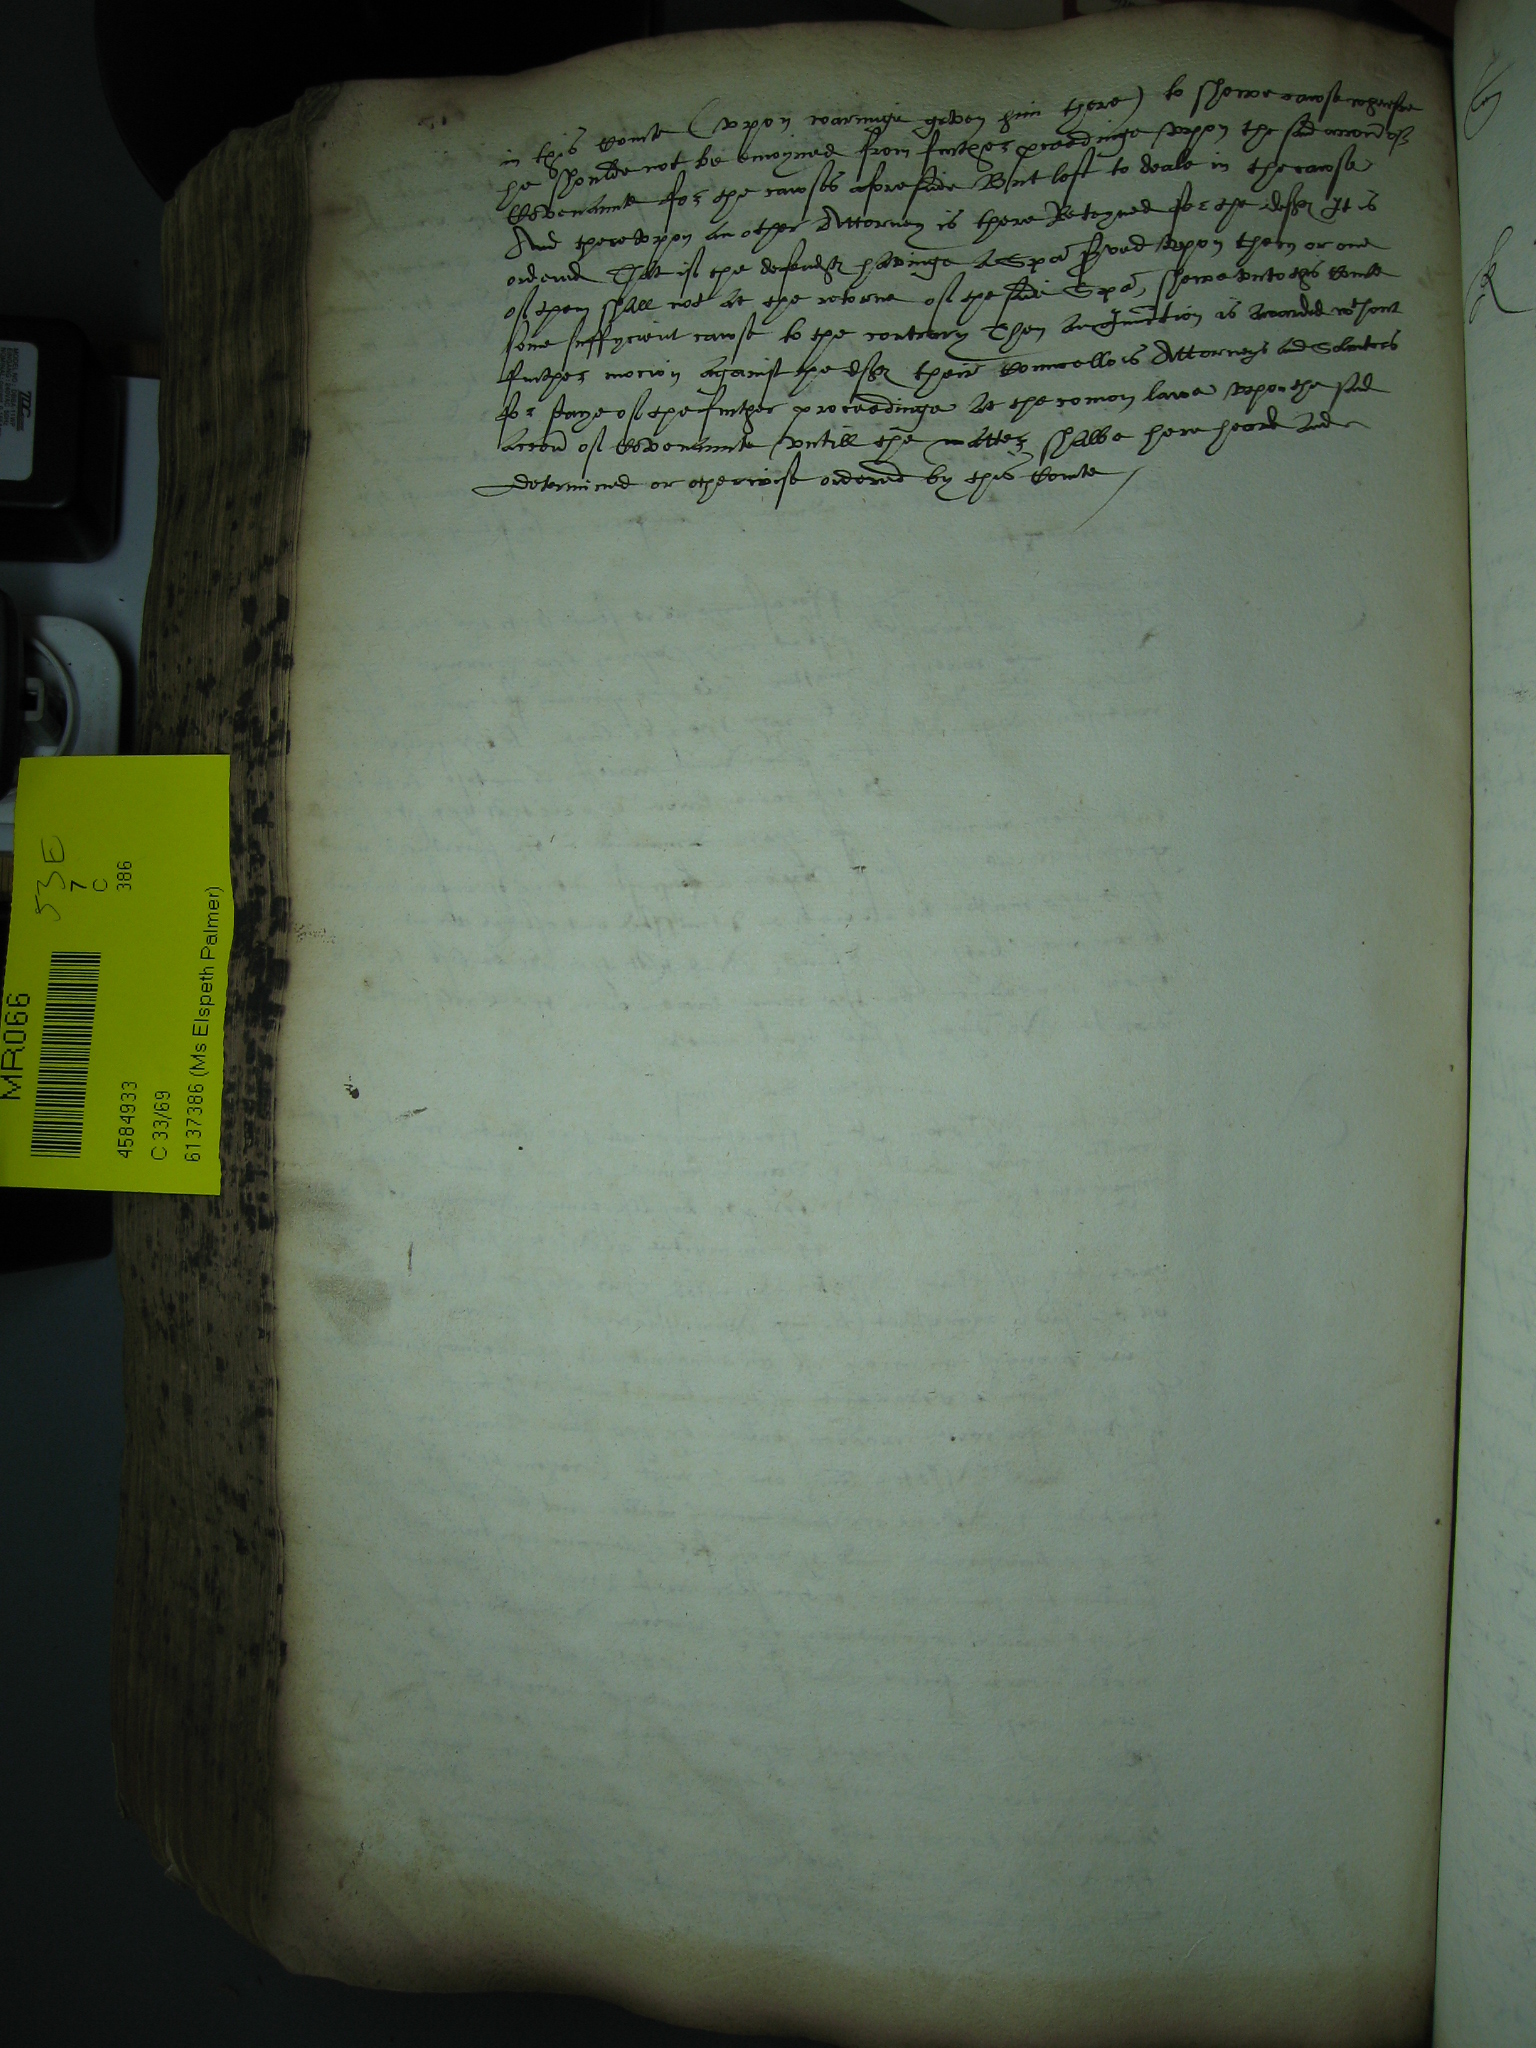 in this Courte (vppon warninge geven him there) to shewe cawse wherefore
he shoulde not be enioyned from further proceedinge vppon the said accōn of
Covenaunte for the cawses aforesaide But lost to deale in the cawse
And therevppon an other Attorney is there Retayned for the defts It is
ordered That if the defendts havinge a Spa served vppon them or one
of them shall not at the retorne of the said Spa, shewe vnto this Courte
some suffycient cawse to the contrary Then an Iniunction is awarded wthout
further mocion against the defts their Councellors Attorneys and Solicitors
for staye of the further proceedinge at the comon lawe vpon the said
accōn of Covenaunte vntill the matter shalbe here heard and
determined or otherwise ordered by this Courte /
MR066
53E
7
C
386
4584933
C 33/69
6137386 (Ms Elspeth Palmer)